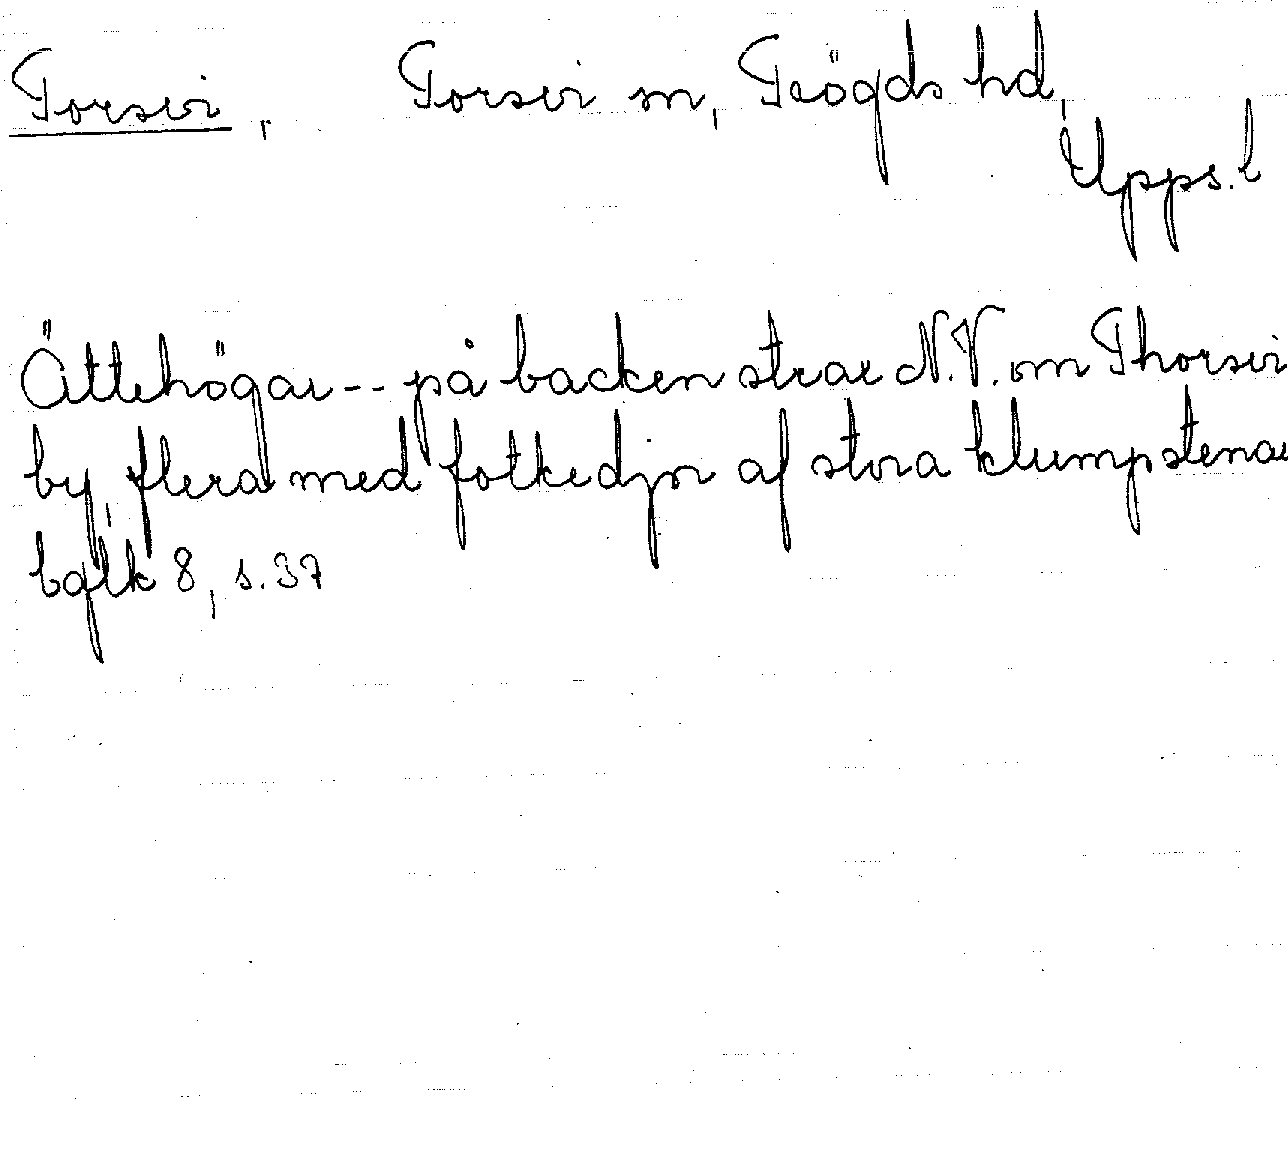 Torsvi,   Torsvi sn, Trögds hd,
Upps. l
Ättehögar -- på backen strax N.V. om Thorsvi
by, flera med fotkedjor af stora klumpstenar
bglk 8, s. 37